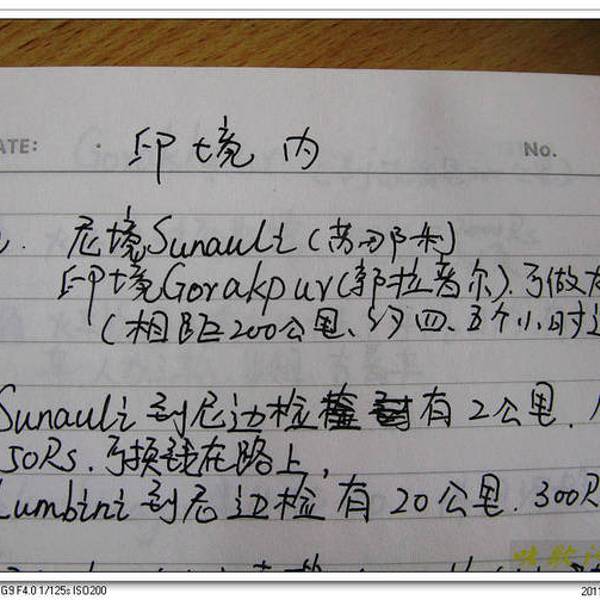 DATE:
印境内
No.
尼境Sunauli(苏那利)
印境Gorakpur(郭拉普尔).可做
(相距200公里、约四、五个小时
Sunauli到尼边检有2公里.
50Rs.可换钱在路上,
Lumbini到尼边检有20公里.300R
G9 F4.0 1/125s ISO200
2011